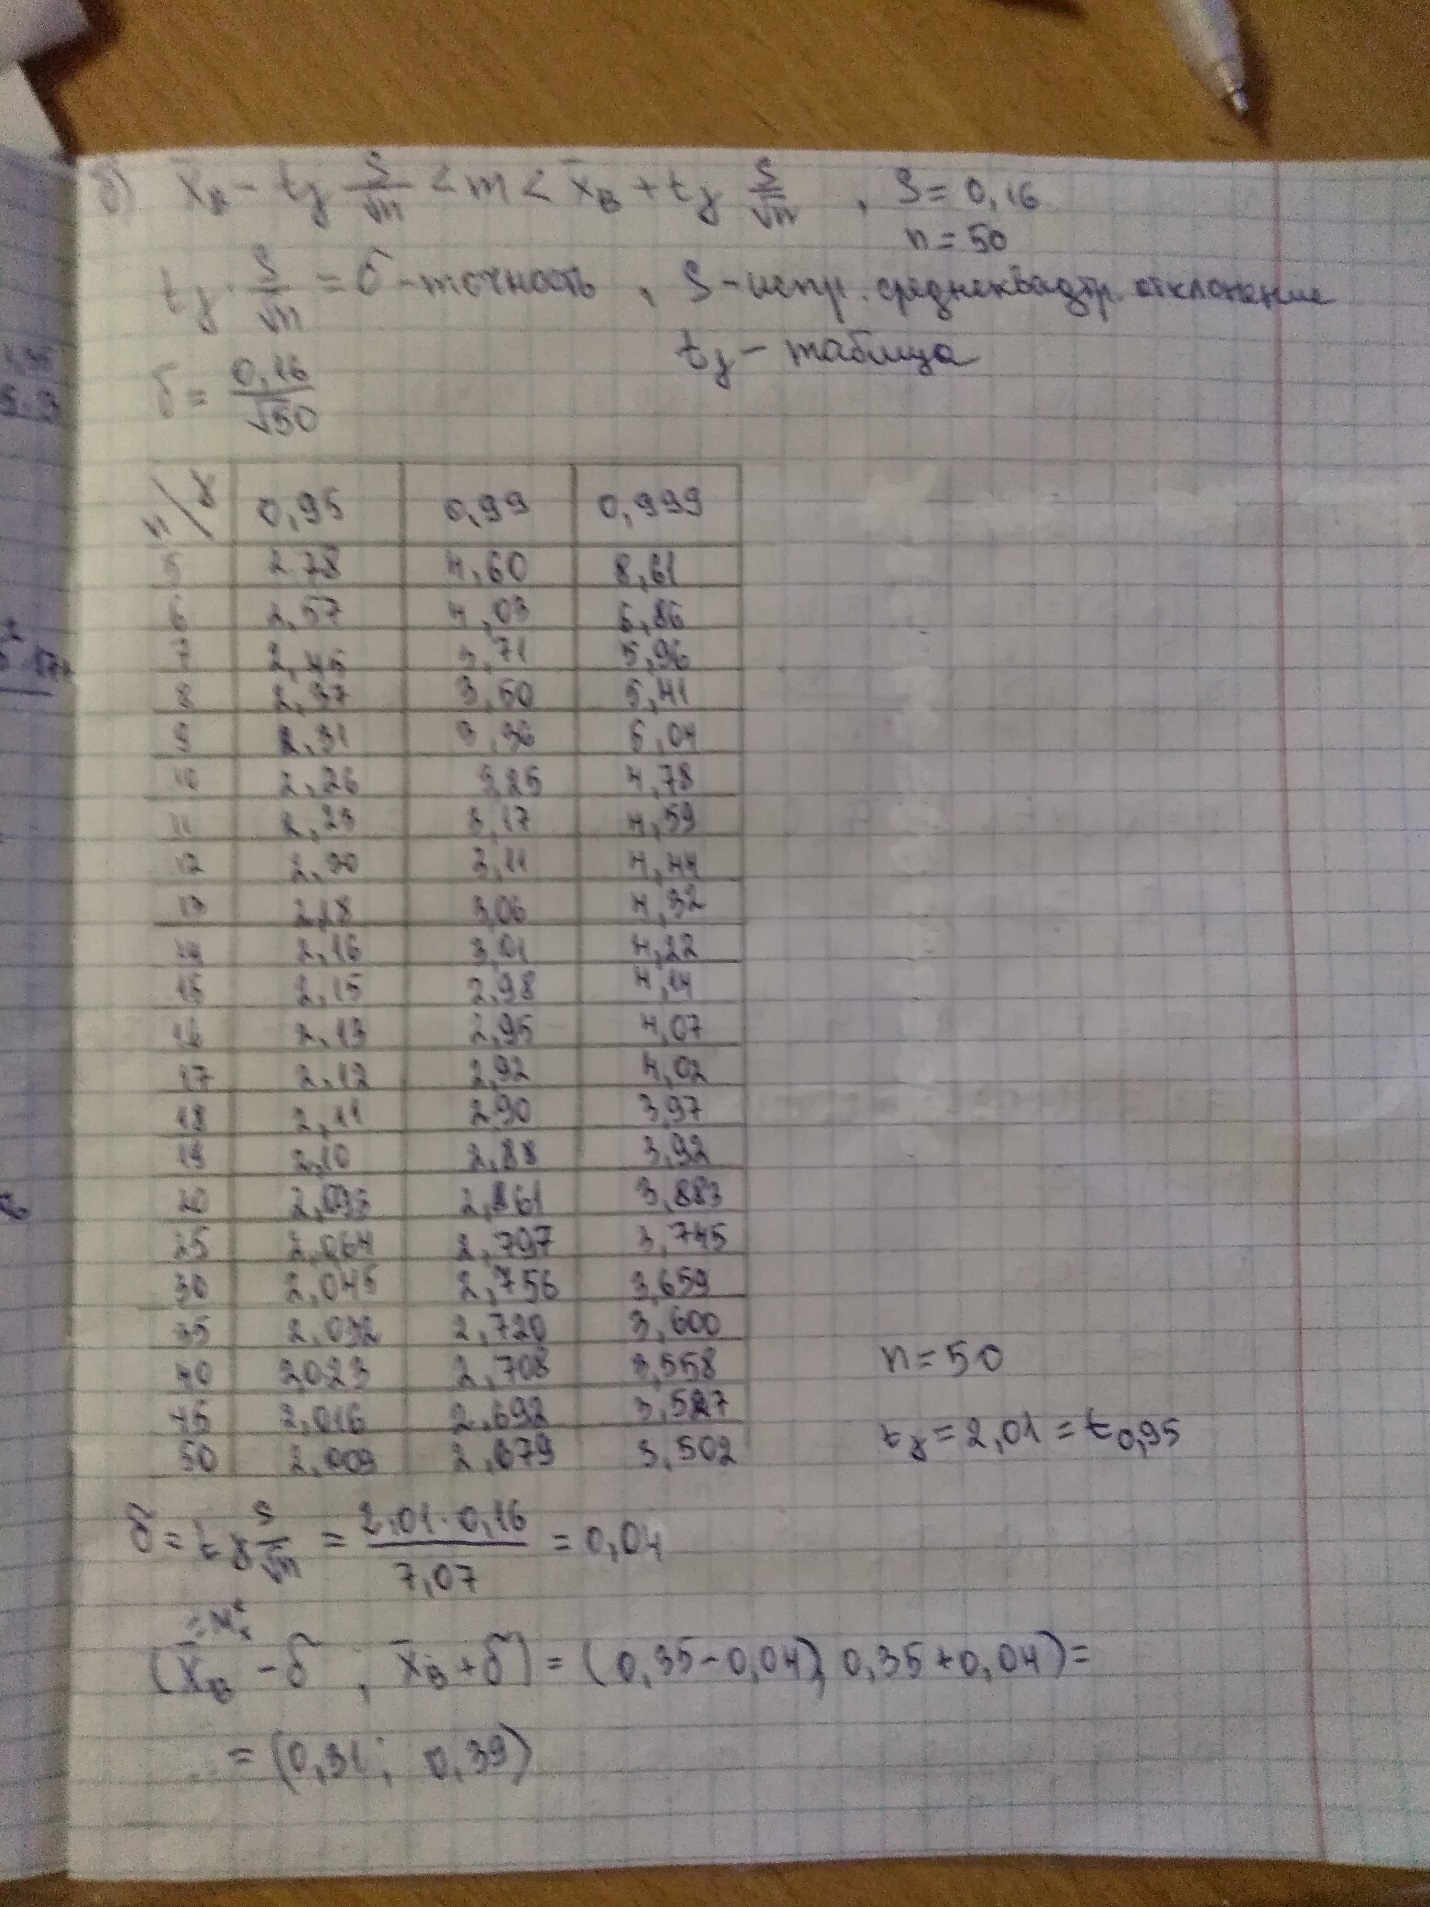 б) x̄в - tγ S/√n < m < x̄в + tγ S/√n , S = 0,16
n = 50
tγ · S/√n = δ - точность , S - испр. среднеквадр. отклонение
tγ - таблица
δ = 0,16/√50
n/γ 0,95 0,99 0,999
5 2.78 4,60 8,61
6 2,57 4,03 6,86
7 2,45 3,71 5,96
8 2,37 3,50 5,41
9 2,31 3,36 5,04
10 2,26 3,25 4,78
11 2,23 3,17 4,59
12 2,20 3,11 4,44
13 2,18 3,06 4,32
14 2,16 3,01 4,22
15 2,15 2,98 4,14
16 2,13 2,95 4,07
17 2,12 2,92 4,02
18 2,11 2,90 3,97
19 2,10 2,88 3,92
20 2,093 2,861 3,883
25 2,064 2,797 3,745
30 2,045 2,756 3,659
35 2,032 2,720 3,600
40 2023 2,708 3,558
45 2,016 2,692 3,527
50 2,009 2,679 3,502
n = 50
tγ = 2,01 = t0,95
δ = tγ S/√n = 2,01 · 0,16 / 7,07 = 0,04
(x̄в - δ ; x̄в + δ) = (0,35 - 0,04; 0,35 + 0,04) =
= (0,31; 0,39)